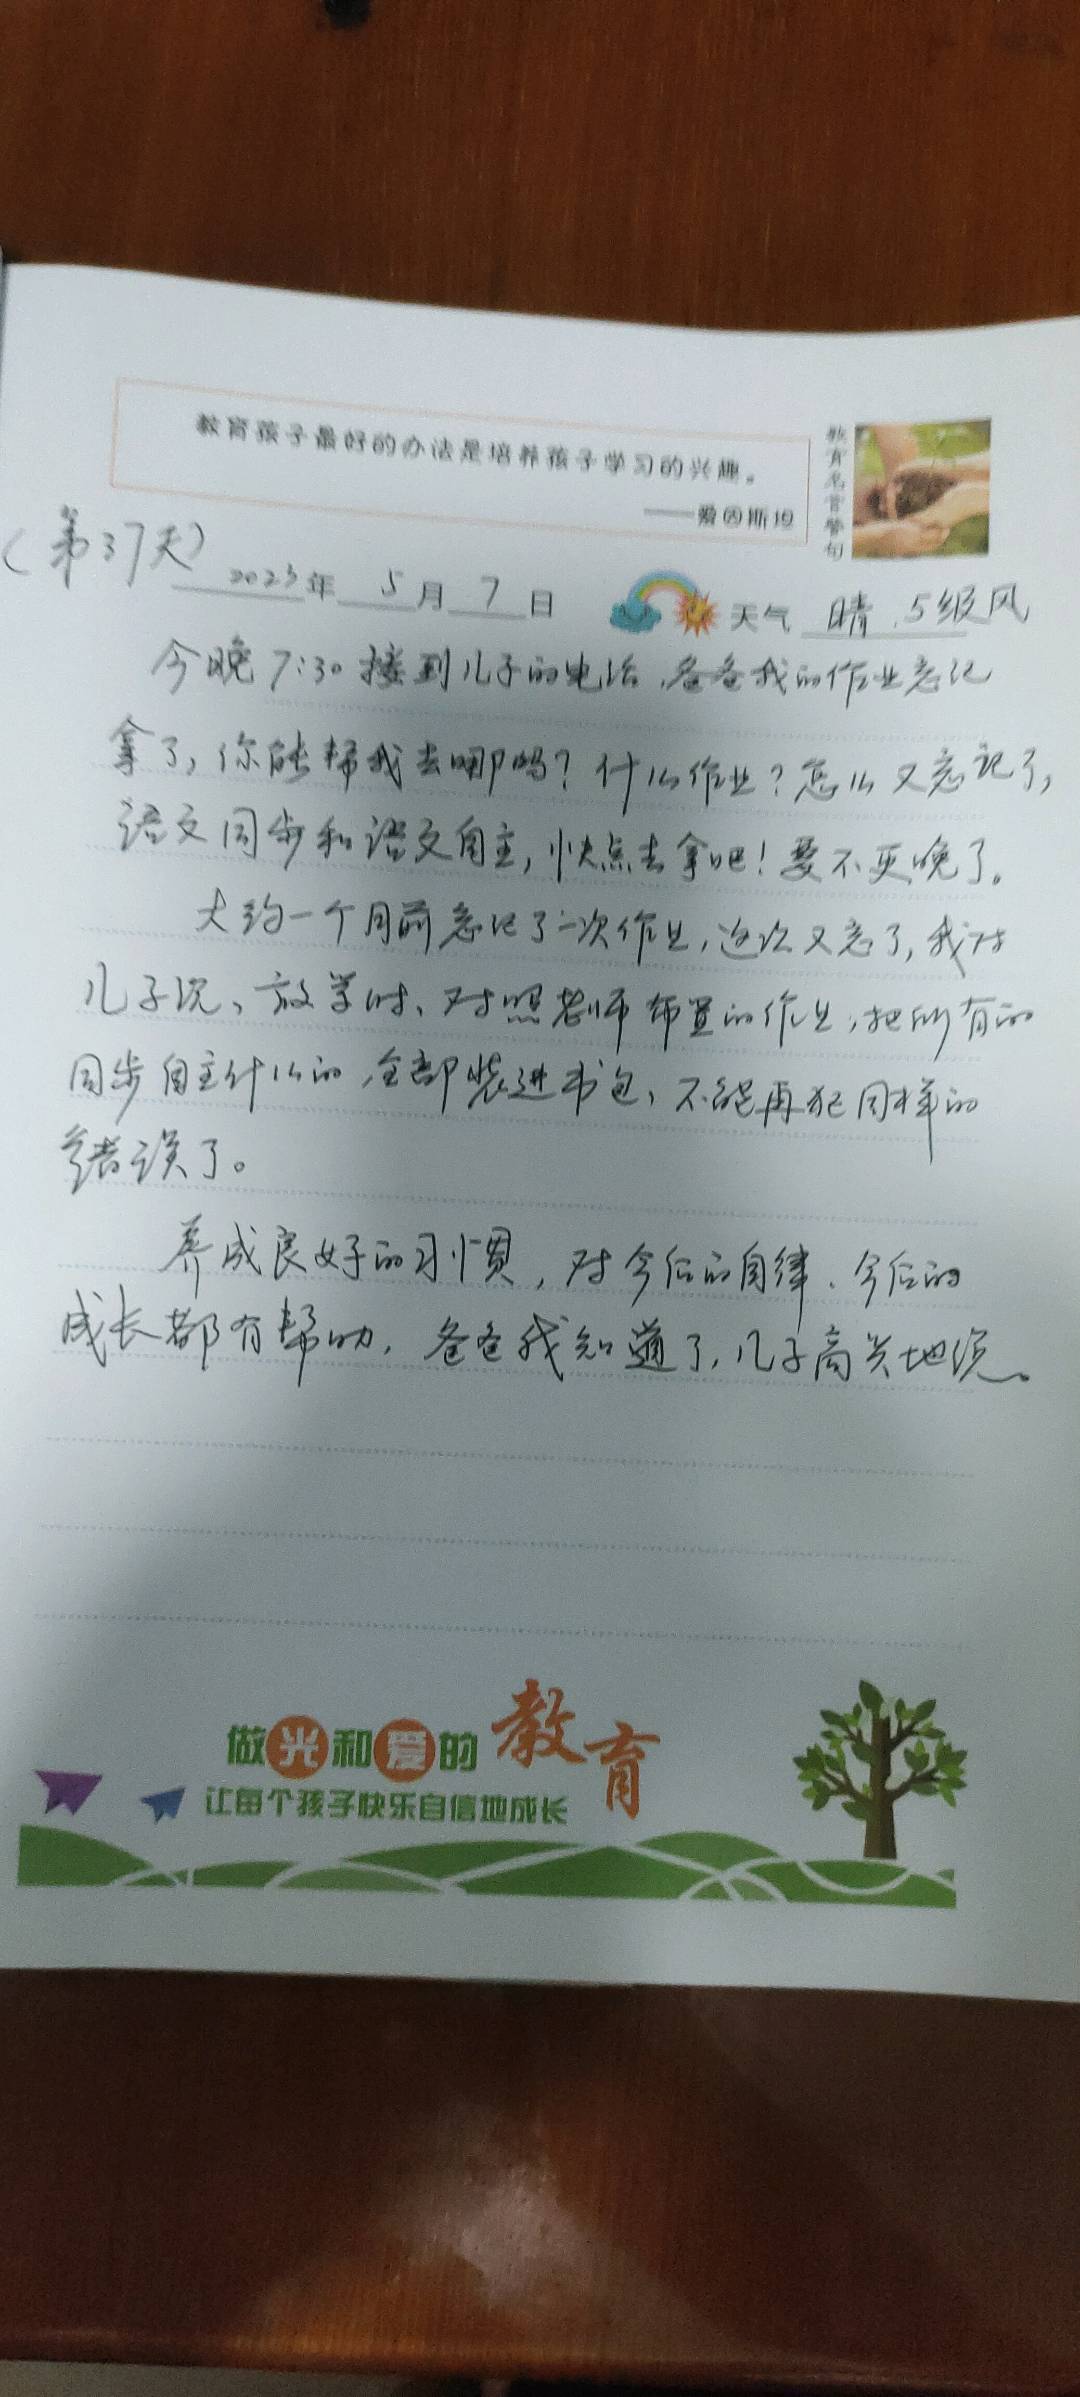 教育孩子最好的办法是培养孩子学习的兴趣。
——爱因斯坦
教育名言警句
(第37天)
2023年 5月 7日 天气 晴、5级风
今晚7:30接到儿子的电话,爸爸我的作业忘记
拿了,你能帮我去哪吗?什么作业?怎么又忘记了,
语文同步和语文自主,快点去拿吧!要不更晚了。
大约一个月前忘记了一次作业,这次又忘了,我对
儿子说、放学时、对照老师布置的作业,把所有的
同步自主什么的,全部装进书包,不能再犯同样的
错误了。
养成良好的习惯,对今后的自律、今后的
成长都有帮助,爸爸我知道了,儿子高兴地说。
做光和爱的教育
让每个孩子快乐自信地成长